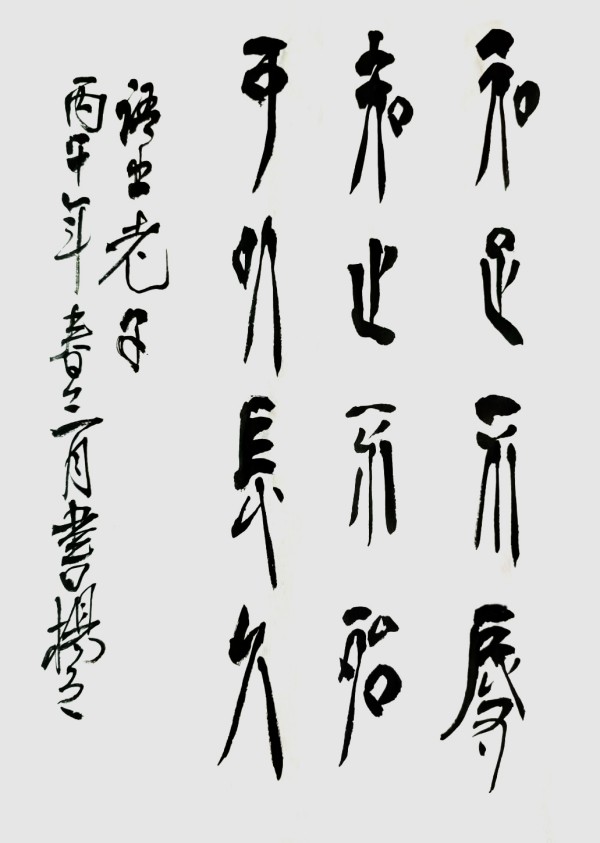 知足不辱
知止不殆
可以长久
语出老子
丙午年春三月书